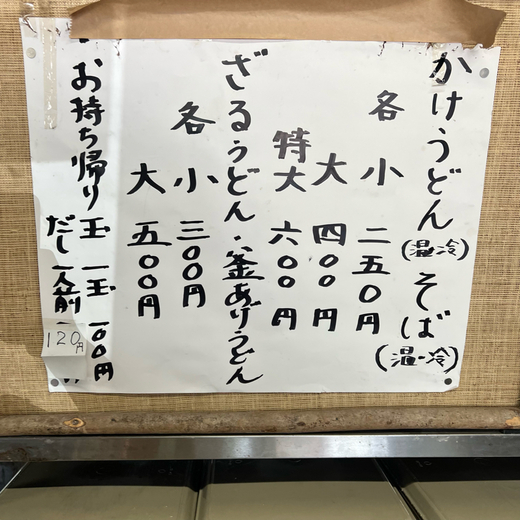 かけうどん(温・冷) そば(温・冷)
各 小 二五〇円
大 四〇〇円
特大 六〇〇円
ざるうどん・釜あげうどん
各 小 三〇〇円
大 五〇〇円
お持ち帰り 玉 一玉 一〇〇円
だし 一人前
120円